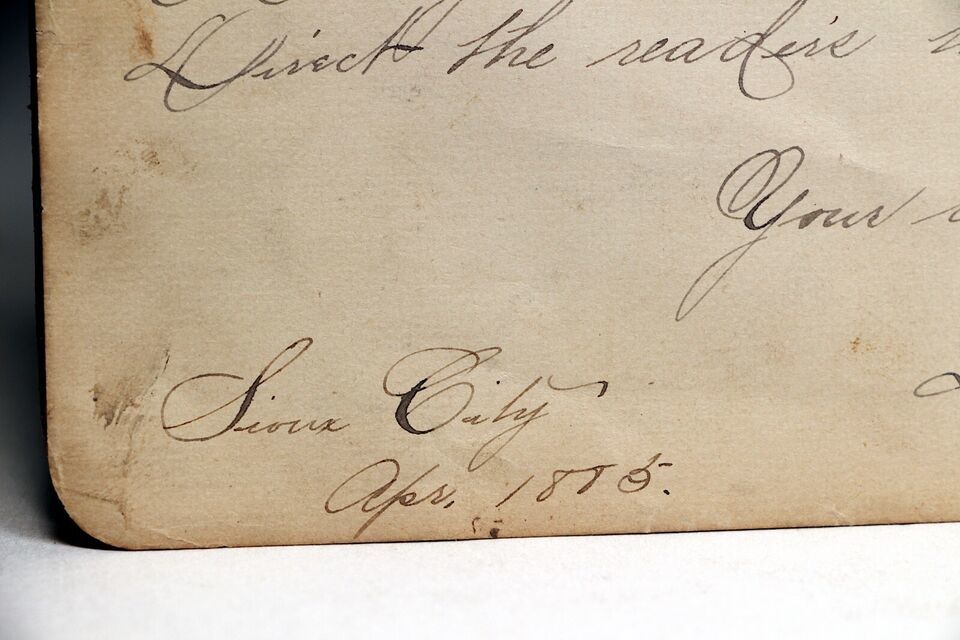 Direct the reader's
Your
Sioux City
Apr. 1885.